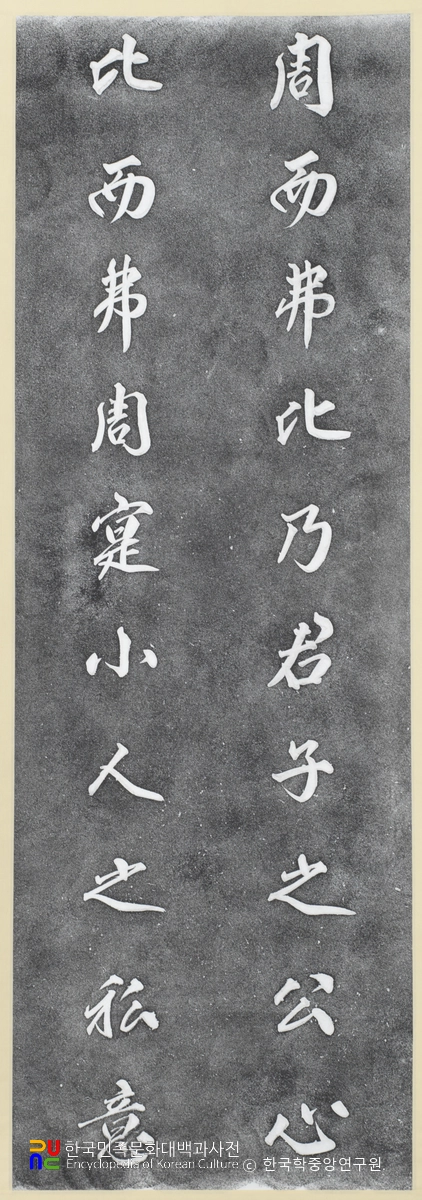 周而弗比乃君子之公心
比而弗周寔小人之私意
한국민족문화대백과사전
Encyclopedia of Korean Culture ⓒ 한국학중앙연구원